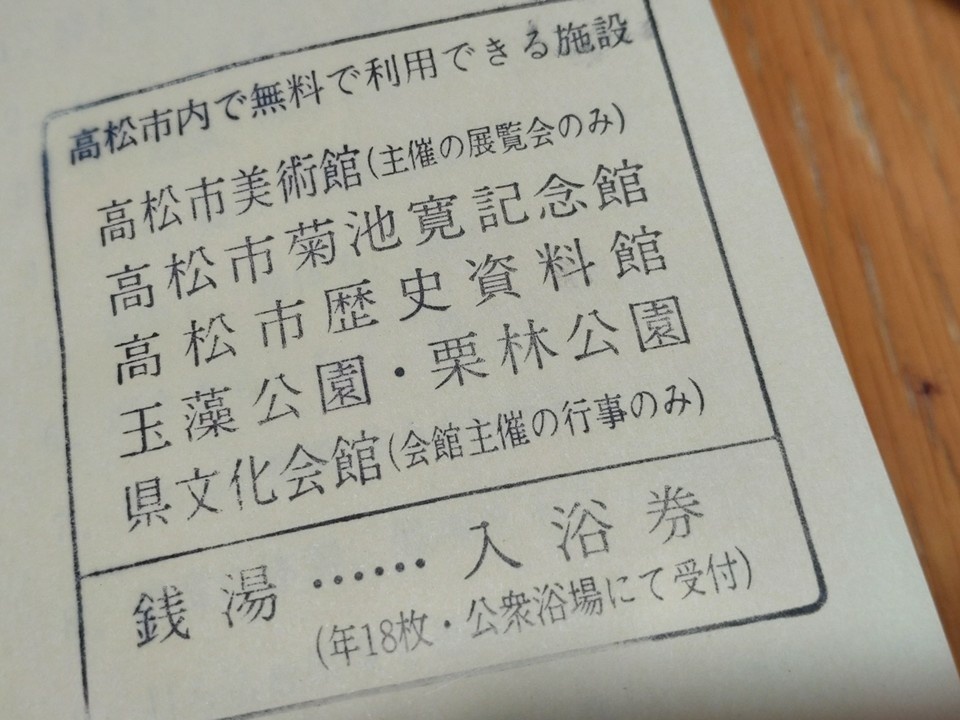 高松市内で無料で利用できる施設
高松市美術館(主催の展覧会のみ)
高松市菊池寛記念館
高松市歴史資料館
玉藻公園・栗林公園
県文化会館(会館主催の行事のみ)
銭湯……入浴券
(年18枚・公衆浴場にて受付)